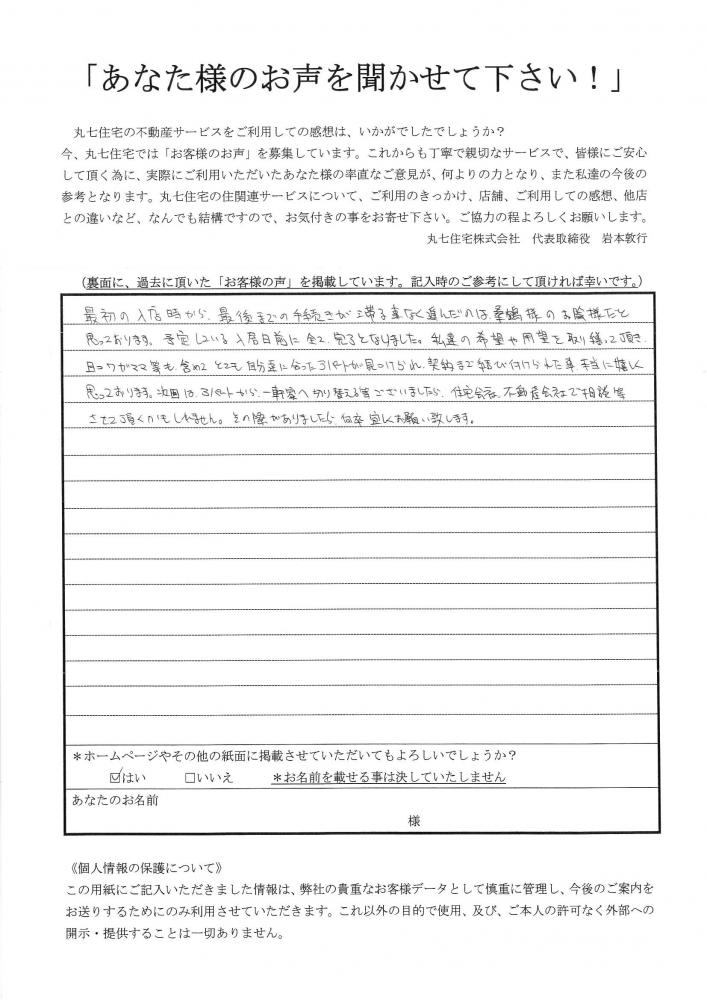 「あなた様のお声を聞かせて下さい！」
丸七住宅の不動産サービスをご利用しての感想は、いかがでしたでしょうか？
今、丸七住宅では「お客様のお声」を募集しています。これからも丁寧で親切なサービスで、皆様にご安心
して頂く為に、実際にご利用いただいたあなた様の率直なご意見が、何よりの力となり、また私達の今後の
参考となります。丸七住宅の住関連サービスについて、ご利用のきっかけ、店舗、ご利用しての感想、他店
との違いなど、なんでも結構ですので、お気付きの事をお寄せ下さい。ご協力の程よろしくお願いします。
丸七住宅株式会社　代表取締役　岩本敦行
（裏面に、過去に頂いた「お客様の声」を掲載しています。記入時のご参考にして頂ければ幸いです。）
最初の入居時から、最後までの手続きが滞る事なく進んだのは 様のお陰様だと
思っております。予定している入居日前に全て完了となりました。私達の希望や用望を取り繕って頂き、
日々ワガママ等も含めてとても自分達に合ったアパートが見つけられ、契約まで結び付けられた事、本当に嬉しく
思っております。次回は、アパートから、一軒家へ切り替える等ございましたら、住宅会社、不動産会社で相談等
させて頂くかもしれません。その際がありましたら、何卒宜しくお願い致します。
＊ホームページやその他の紙面に掲載させていただいてもよろしいでしょうか？
☑はい　□いいえ　＊お名前を載せる事は決していたしません
あなたのお名前
様
《個人情報の保護について》
この用紙にご記入いただきました情報は、弊社の貴重なお客様データとして慎重に管理し、今後のご案内を
お送りするためにのみ利用させていただきます。これ以外の目的で使用、及び、ご本人の許可なく外部への
開示・提供することは一切ありません。